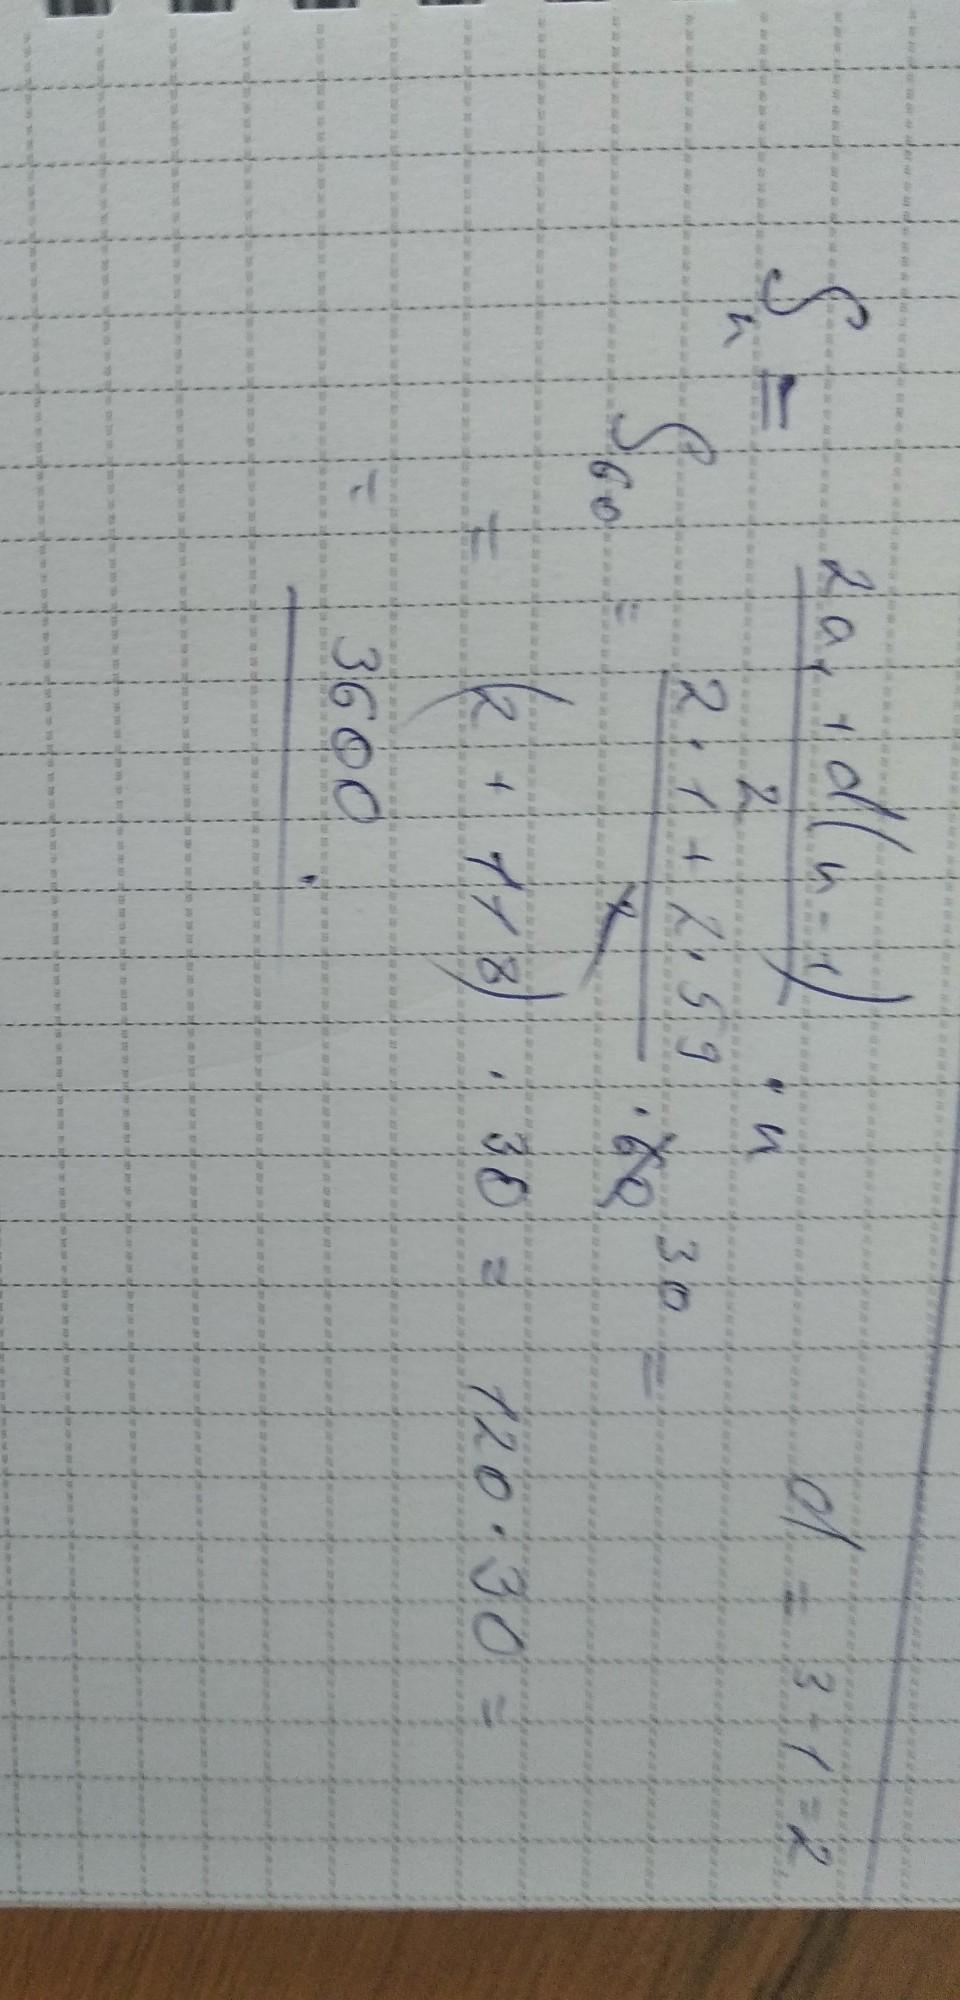 Sn = (2a₁ + d(n-1))/2 · n d = 3-1=2
S₆₀ = (2·1 + 2·59)/2 · 60 30 =
= (2 + 118) · 30 = 120·30 =
= 3600